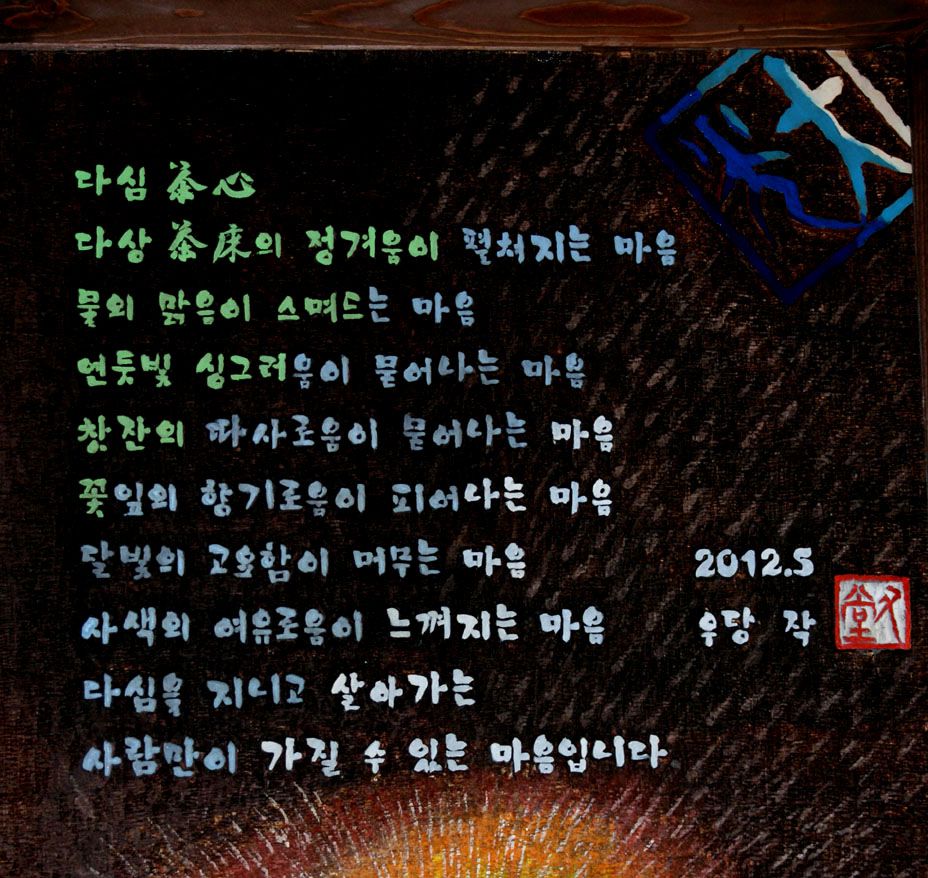 다심 茶心
다상 茶床의 정겨움이 펼쳐지는 마음
물의 맑음이 스며드는 마음
연둣빛 싱그러움이 묻어나는 마음
찻잔의 따사로움이 묻어나는 마음
꽃잎의 향기로움이 피어나는 마음
달빛의 고요함이 머무는 마음
사색의 여유로움이 느껴지는 마음
다심을 지니고 살아가는
사람만이 가질 수 있는 마음입니다
2012.5
우당 작
又堂